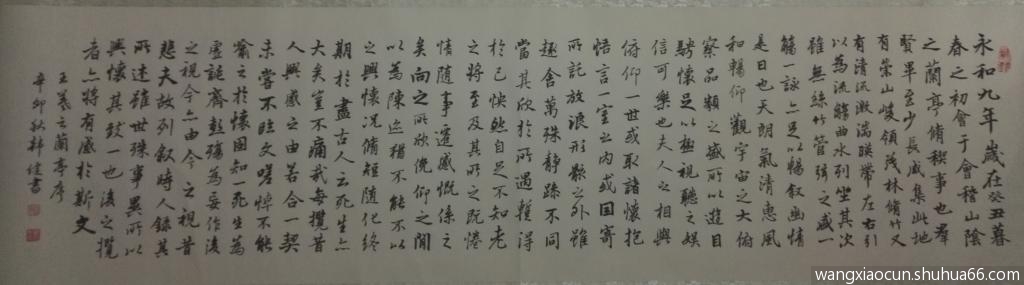 永和九年歲在癸丑暮
春之初會于會稽山陰
之蘭亭脩稧事也羣
賢畢至少長咸集此地
有崇山峻領茂林脩竹又
有清流激湍暎帶左右引
以為流觴曲水列坐其次
雖無絲竹管弦之盛一
觴一詠亦足以暢叙幽情
是日也天朗氣清惠風
和暢仰觀宇宙之大俯
察品類之盛所以遊目
騁懷足以極視聽之娛
信可樂也夫人之相與
俯仰一世或取諸懷抱
悟言一室之內或因寄
所託放浪形骸之外雖
趣舍萬殊靜躁不同
當其欣於所遇暫得
於己怏然自足不知老
之將至及其所之既惓
情隨事遷感慨係之
矣向之所欣俛仰之間
以為陳迹猶不能不以
之興懷況脩短隨化終
期於盡古人云死生亦
大矣豈不痛哉每攬昔
人興感之由若合一契
未嘗不臨文嗟悼不能
喻之於懷固知一死生為
虛誕齊彭殤為妄作後
之視今亦由今之視昔
悲夫故列叙時人錄其
所述雖世殊事異所以
興懷其致一也後之攬
者亦將有感於斯文
王羲之蘭亭序
辛卯秋 佳書
wangxiaocun.shuhua66.com